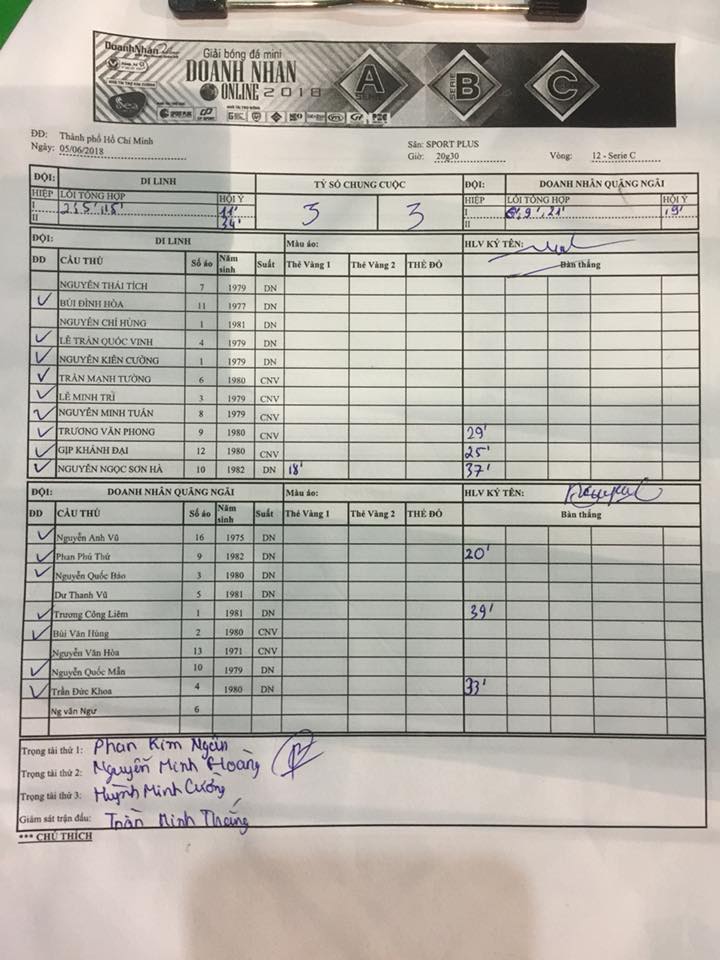 DoanhNhân
Giải bóng đá mini
DOANH NHÂN
ONLINE 2018
A
SERIE
B
SERIE
C
Sea
SPORT PLUS
ĐĐ: Thành phố Hồ Chí Minh
Sân: SPORT PLUS
Ngày: 05/06/2018
Giờ: 20g30
Vòng: 12 - Serie C
ĐỘI: DI LINH TỶ SỐ CHUNG CUỘC ĐỘI: DOANH NHÂN QUẢNG NGÃI
HIỆP LỖI TỔNG HỢP HỘI Ý 3 3 HIỆP LỖI TỔNG HỢP HỘI Ý
I 11' I 9', 21' 19'
II 34' II
ĐỘI: DI LINH Màu áo: HLV KÝ TÊN:
DD CẦU THỦ Số áo Năm sinh Suất Thẻ Vàng 1 Thẻ Vàng 2 THẺ ĐỎ Bàn thắng
NGUYỄN THÁI TÍCH 7 1979 DN
BÙI ĐÌNH HÒA 11 1977 DN
NGUYỄN CHÍ HÙNG 1 1981 DN
LÊ TRẦN QUỐC VINH 4 1979 DN
NGUYỄN KIÊN CƯỜNG 1 1979 DN
TRẦN MẠNH TƯỜNG 6 1980 CNV
LÊ MINH TRÌ 3 1979 CNV
NGUYỄN MINH TUẤN 8 1979 CNV
TRƯƠNG VĂN PHONG 9 1980 CNV 29'
GỊP KHÁNH ĐẠI 12 1980 CNV 25'
NGUYỄN NGỌC SƠN HÀ 10 1982 DN 18' 37'
ĐỘI: DOANH NHÂN QUẢNG NGÃI Màu áo: HLV KÝ TÊN:
DD CẦU THỦ Số áo Năm sinh Suất Thẻ Vàng 1 Thẻ Vàng 2 THẺ ĐỎ Bàn thắng
Nguyễn Anh Vũ 16 1975 DN
Phan Phú Thứ 9 1982 DN 20'
Nguyễn Quốc Bảo 3 1980 DN
Dư Thanh Vũ 5 1981 DN
Trương Công Liêm 1 1981 DN 39'
Bùi Văn Hùng 2 1980 CNV
Nguyễn Văn Hòa 13 1971 CNV
Nguyễn Quốc Mẫn 10 1979 DN
Trần Đức Khoa 4 1980 DN 33'
Ng văn Ngư 6
Trọng tài thứ 1: Phan Kim Ngân
Trọng tài thứ 2: Nguyễn Minh Hoàng
Trọng tài thứ 3: Huỳnh Minh Cường
Giám sát trận đấu: Trần Minh Thắng
*** CHÚ THÍCH